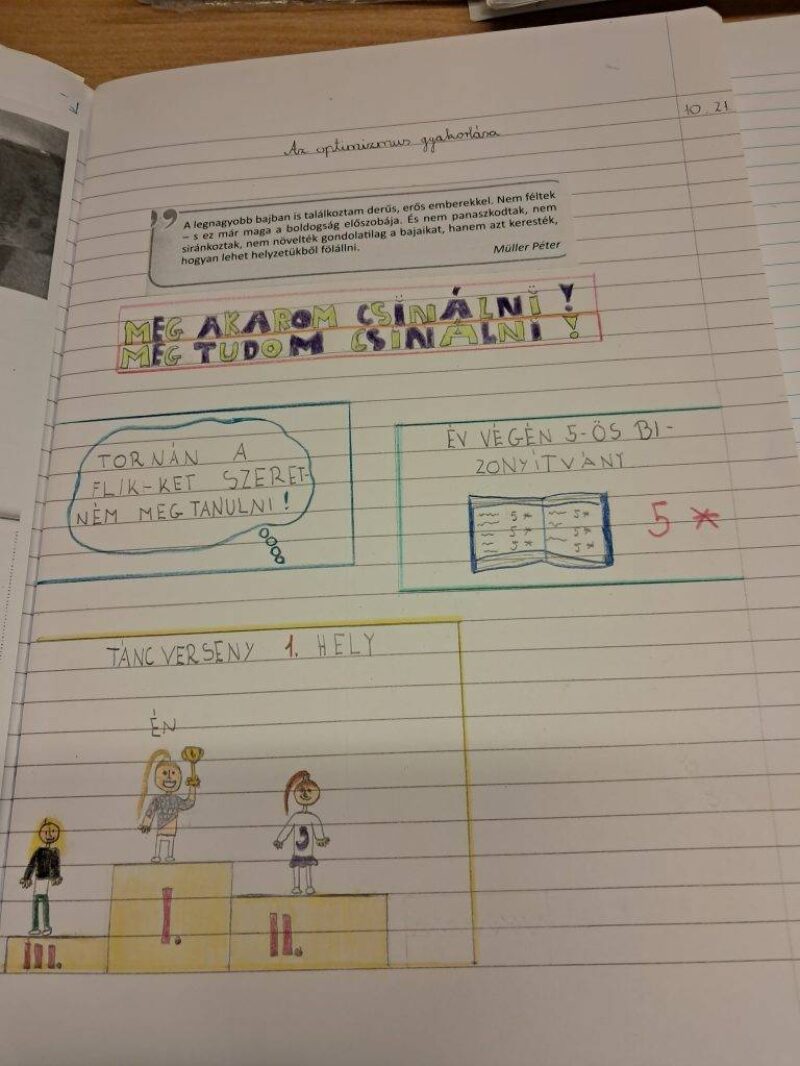 10.21
Az optimizmus gyakorlása
A legnagyobb bajban is találkoztam derűs, erős emberekkel. Nem féltek
– s ez már maga a boldogság előszobája. És nem panaszkodtak, nem
siránkoztak, nem növelték gondolatilag a bajaikat, hanem azt keresték,
hogyan lehet helyzetükből fölállni.
Müller Péter
MEG AKAROM CSINÁLNI!
MEG TUDOM CSINÁLNI!
TORNÁN A
FLIK-KET SZERET-
NÉM MEGTANULNI!
ÉV VÉGÉN 5-ÖS BI-
ZONYÍTVÁNY
5* 5*
5* 5*
5* 5*
5 *
TÁNCVERSENY 1. HELY
ÉN
5
I.
II.
III.